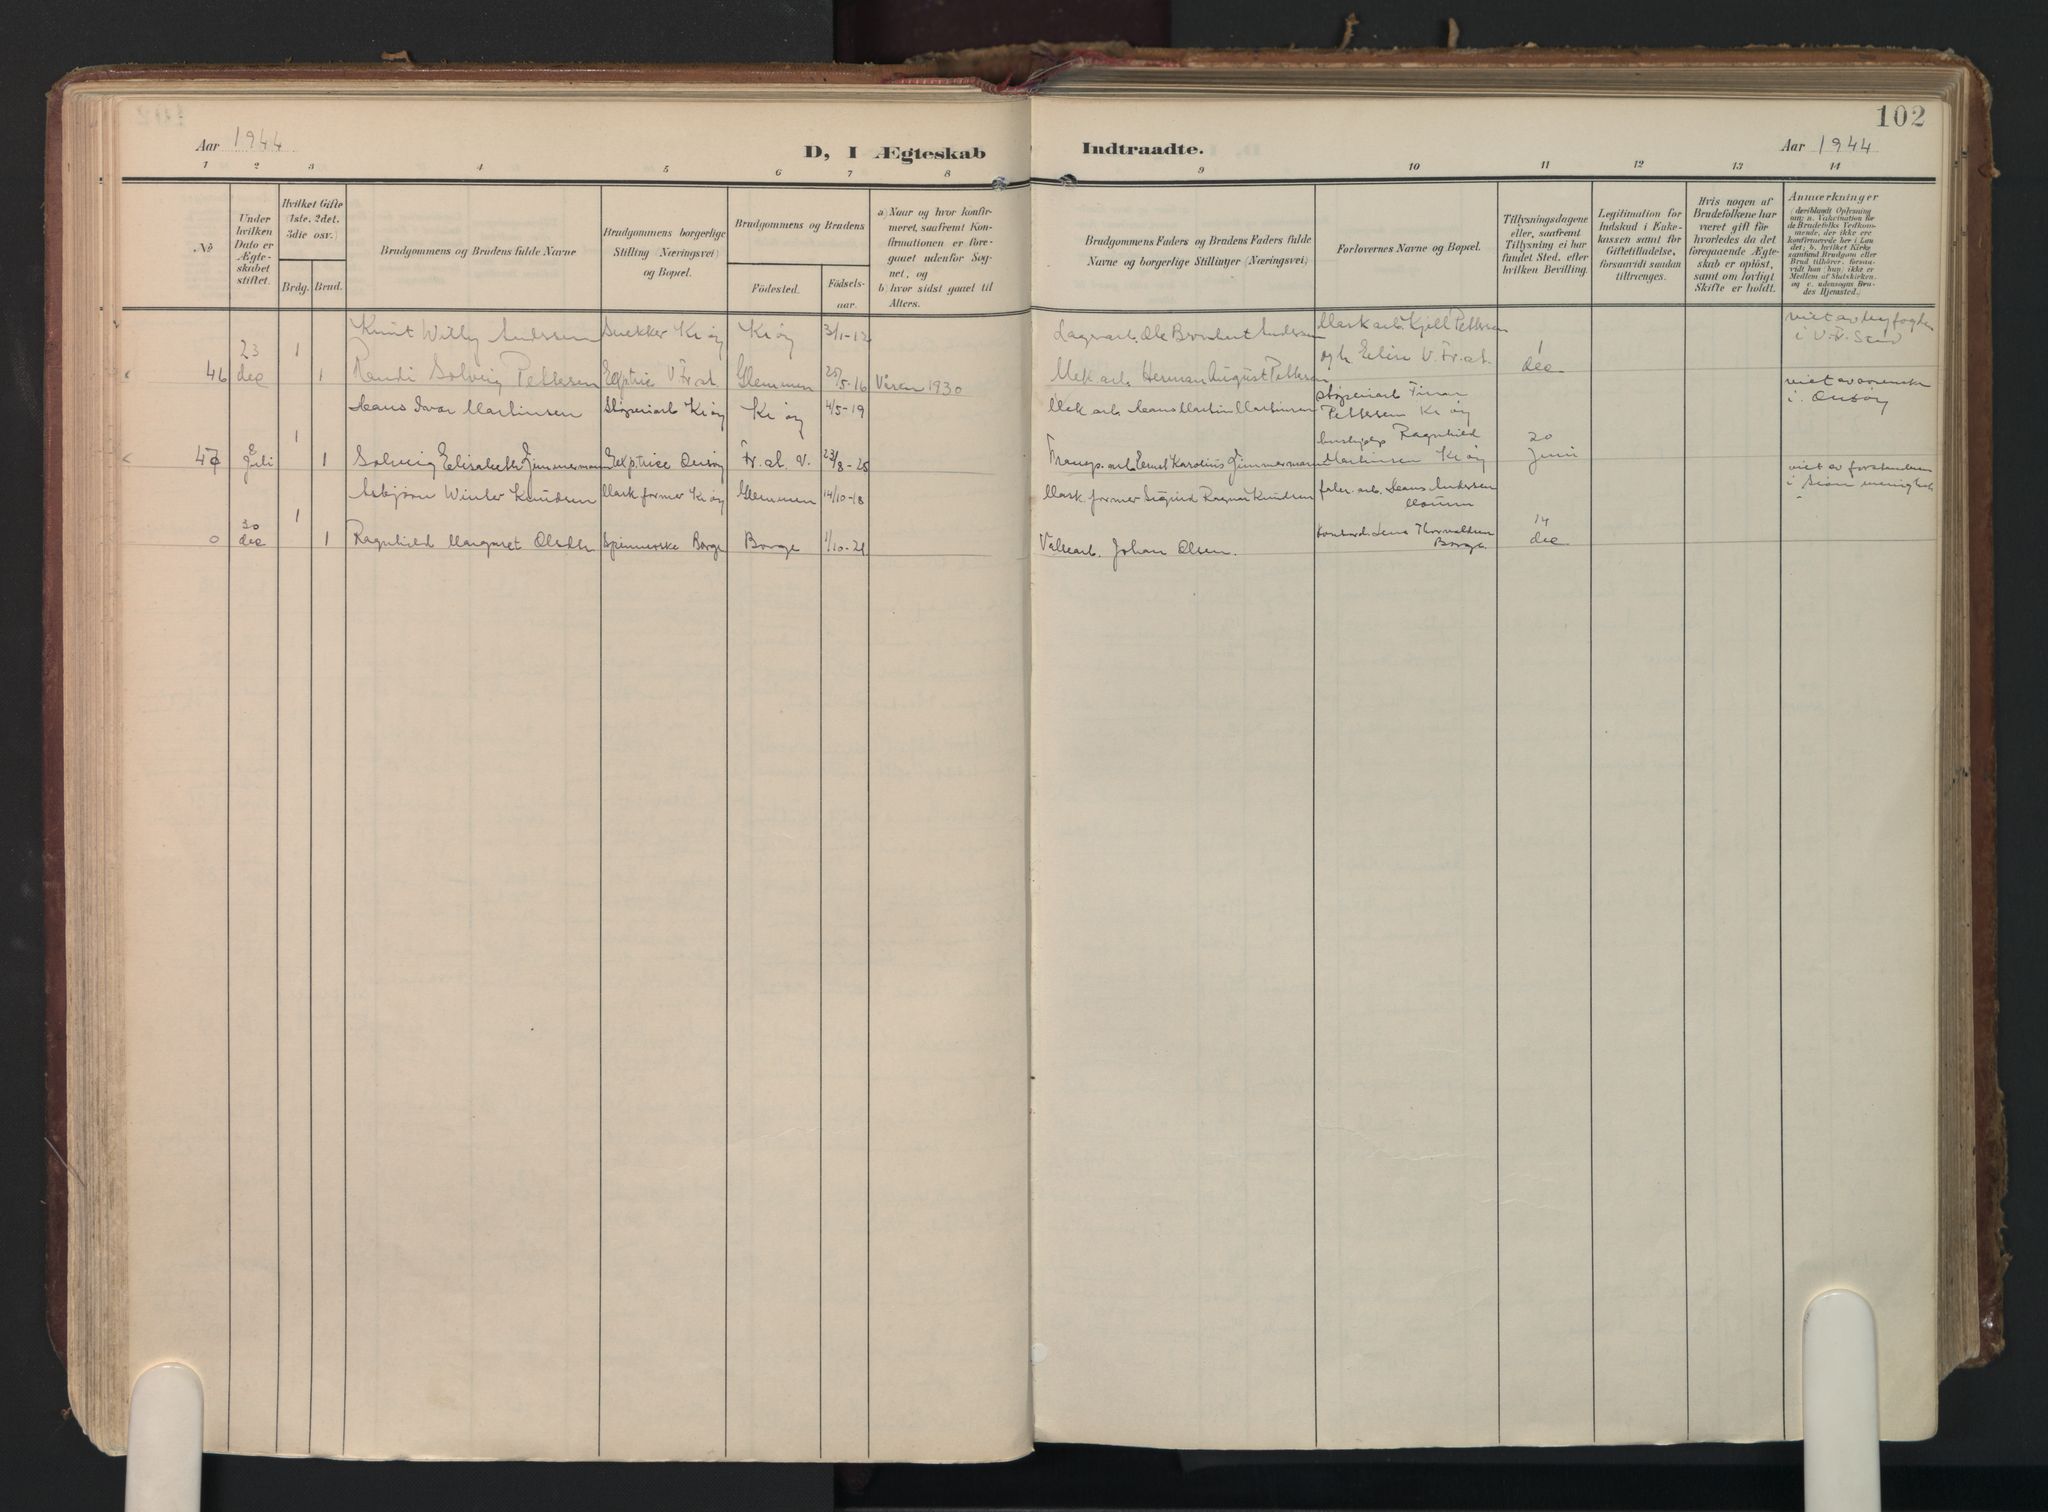 102
Aar 1944
D, I Ægteskab
Indtraadte.
Aar 1944
1 2 3 4 5 6 7 8 9 10 11 12 13 14
No
Under hvilken Dato er Ægteskabet stiftet.
Hvilket Gifte 1ste. 2det. 3die osv.)
Brdg. Brud.
Brudgommens og Brudens fulde Navne
Brudgommens borgerlige Stilling (Næringsvei) og Bopæl.
Brudgommens og Brudens
Födested.
Födselsaar.
a) Naar og hvor konfirmeret, saafremt Konfirmationen er foregaaet udenfor Sognet, og
b) hvor sidst gaaet til Alters.
Brudgommens Faders og Brudens Faders fulde Navne og borgerlige Stillinger (Næringsvei)
Forlovernes Navne og Bopæl.
Tillysningsdagene eller, saafremt Tillysning ei har fundet Sted, efter hvilken Bevilling.
Legitimation for Indskud i Enkekassen samt for Giftetilladelse, forsaavidt saadan tiltrænges.
Hvis nogen af Brudefolkene har været gift før hvorledes da det foregaaende Ægteskab er oplöst, samt om lovligt Skifte er holdt.
Anmærkninger
(deriblandt Oplysning om: a. Vakcination for de Brudefolks Vedkommende, der ikke ere konfirmerede her i Landet; b. hvilket Kirkesamfund Brudgom eller Brud tilhörer, forsaavidt han (hun) ikke er Medlem af Statskirken, og c. udensogns Brudes Hjemsted.)
Knut Willy Andersen Snekker Kr øy Kr øy 3/1-12 Lagerarb. Ole Andersen Mask arb. Kjell Pettersen
46 23 dec 1 1 Randi Solveig Pettersen Exptrice V Fr.st. Glemmen 25/5-16 Våren 1930 Mek arb Herman August Pettersen V. Fr.st. 1 dec
i V. Fr. Stad
Hans Ivar Martinsen Støperiarb Kr øy Kr øy 4/5-19 Mek arb Hans Martin Martinsen støperiarb Einar Pettersen Kr øy
i Onsøy
47 Juli 1 1 Solveig Elisabeth Zimmermann Exptrice Onsøy Fr. st. V. 23/8-25 Transp. arb Ernst Karolius Zimmermann hushjelp Ragnhild Martinsen Kr øy 20 Juni
Asbjørn Winter Knudsen Mask. former Kr øy Glemmen 14/10-18 Mask. former Sigurd Ragnar Knudsen arb. Hans Andersen
viet av forstanderen i Sion menighet
0 30 dec 1 1 Ragnhild Margaret Olsen Spinnerske Borge Borge 1/10-21 Valsearb. Johan Olsen. Thorvaldsen Borge 14 dec